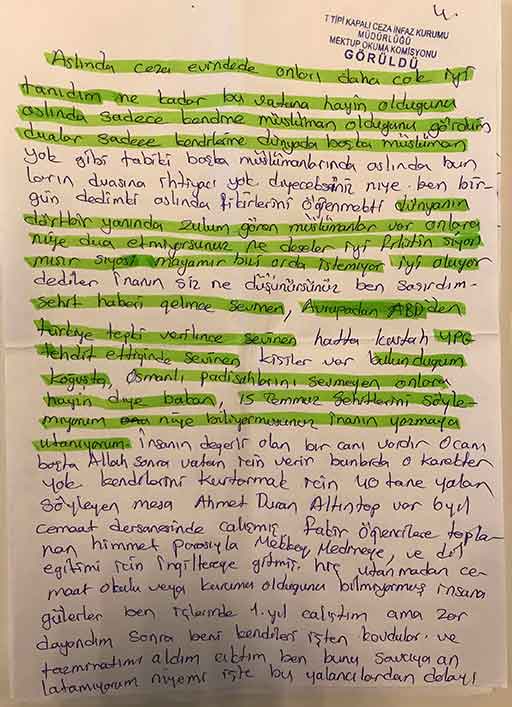 4.
T TİPİ KAPALI CEZA İNFAZ KURUMU
MÜDÜRLÜĞÜ
MEKTUP OKUMA KOMİSYONU
GÖRÜLDÜ
Aslında ceza evindede onları daha çok iyi
tanıdım ne kadar bu vatana hayin olduğunu
aslında sadece kendine müslüman olduğunu gördüm
dualar sadece kendilerine dünyada başka müslüman
yok gibi tabiki başka müslümanlarında aslında bun
ların duasına ihtiyacı yok diyeceksiniz niye. ben bir-
gün dedimki aslında fikirlerini öğrenmekti dünyanın
dört bir yanında zulum gören müslümanlar var onlara
niye dua etmiyorsunuz ne deseler iyi Filistin siyasi
mısır siyasi mayamır bizi orda istemiyor iyi oluyor
dediler inanın siz ne düşünürsünüz ben şaşırdım-
şehit haberi gelince sevinen, Avrupadan ABD'den
türkiye tepki verilince sevinen hatta küstah YPG
tehdit ettiğinde sevinen kişiler var bulunduğum
koğuşta, Osmanlı padişahlarını sevmeyen onlara
hayin diye bakan, 15 Temmuz şehitlerini söyle-
miyorum niye biliyormusunuz inanın yazmaya
utanıyorum. insanın değerli olan bir canı vardır O canı
başta Allah sonra vatan için verir bunlarda o karakter
yok kendilerini kurtarmak için 40 tane yalan
söyleyen mesa Ahmet Duran Altıntop var 8 yıl
cemaat dersanesinde çalışmış fakir öğrencilere topla-
nan himmet parasıyla Mekkey Medineye, ve dil
egitimi için ingiltereye gitmiş. hiç utanmadan ce-
maat okulu veya kurumu olduğunu bilmiyormuş insana
gülerler ben işlerinde 1. yıl çalıştım ama zor
dayandım sonra beni kendileri işten kovdular. ve
tazminatımı aldım çıktım ben bunu savcıya an
latamıyorum niyemi işte bu yalancılardan dolayı